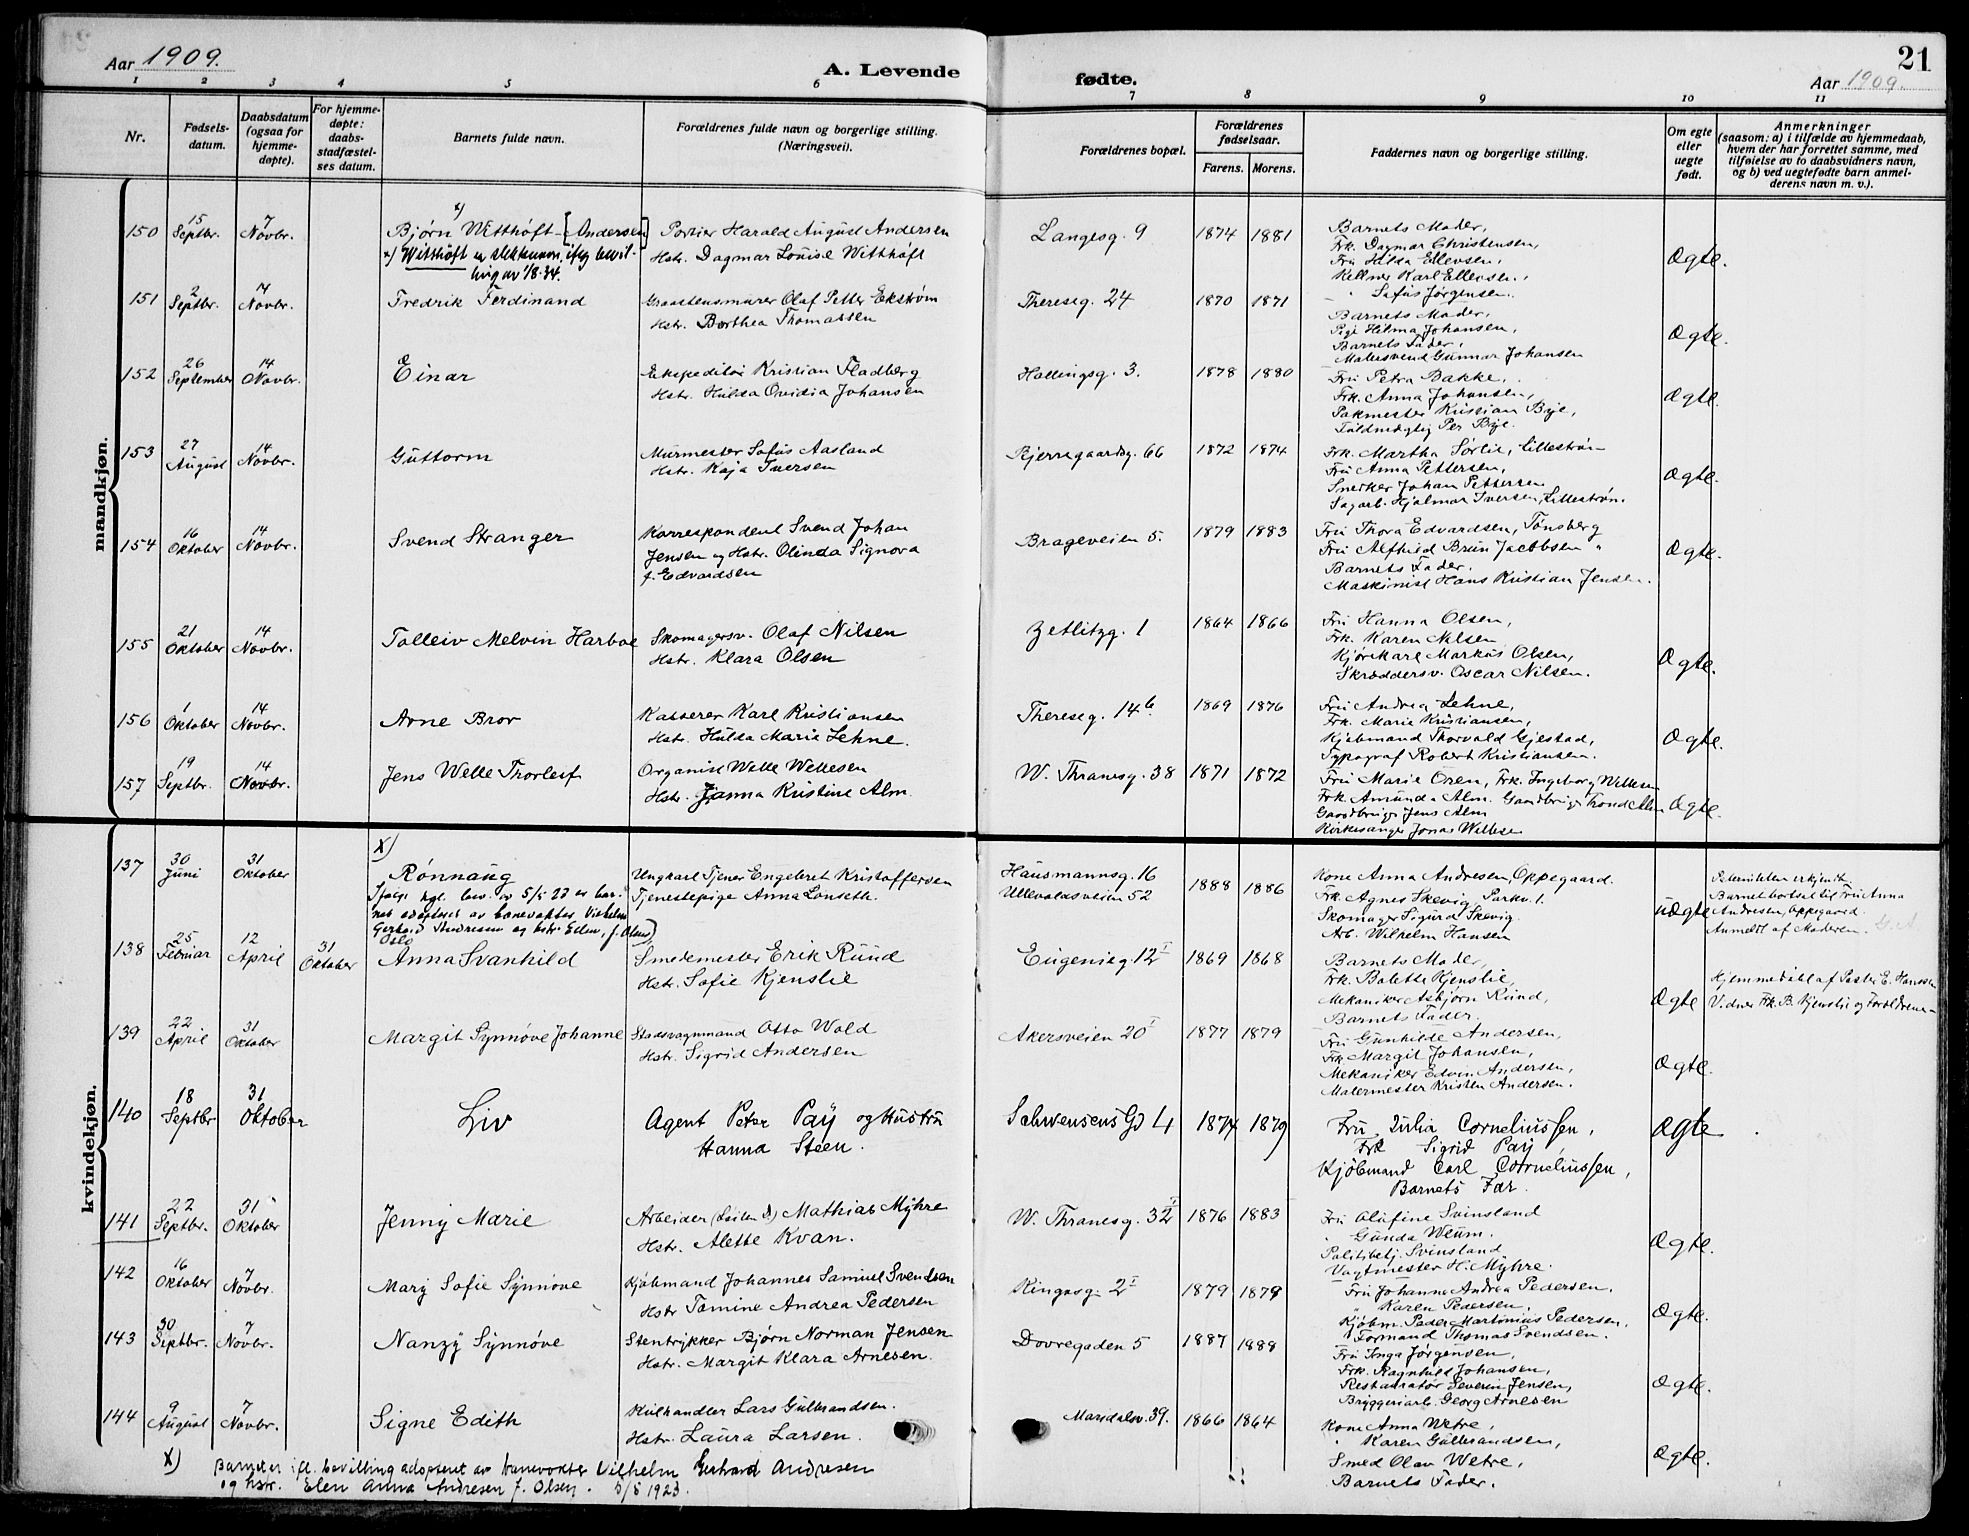 Aar 1909.
A. Levende fødte.
21
Aar 1909.
1 2 3 4 5 6 7 8 9 10 11
Nr.
Fødsels-
datum.
Daabsdatum
(ogsaa for
hjemme-
døpte).
For hjemme-
døpte:
daabs-
stadfæstel-
ses datum.
Barnets fulde navn.
Forældrenes fulde navn og borgerlige stilling.
(Næringsvei).
Forældrenes bopæl.
Forældrenes
fødselsaar.
Farens. Morens.
Faddernes navn og borgerlige stilling.
Om egte
eller
uegte
født.
Anmerkninger
(saasom: a) i tilfælde av hjemmedaab,
hvem der har forrettet samme, med
tilføielse av to daabsvidners navn,
og b) ved uegtefødte barn anmel-
derens navn m. v.).
mandkjøn.
150
15 Septbr.
7 Novbr.
x)
Bjørn Witthöft [Andersen]
x) Witthöft er slektsnavn ifølg bevil-
ling av 1/8.34.
Portier Harald August Andersen
Hstr. Dagmar Louise Witthöft
Langesg. 9
1874 1881
Barnets Moder,
Frk. Dagmar Christensen,
Fru Hilda Ellevsen,
Kellner Karl Ellevsen,
" Sofus Jørgensen.
Ægte.
151
2 Septbr.
14 Novbr.
Fredrik Ferdinand
Graastensmurer Olaf Petter Ekstrøm
Hstr. Borthea Thomassen
Thereseg. 24
1870 1871
Barnets Moder,
Pige Hilma Johansen,
Barnets Fader,
Malersvend Gunnar Johansen
Ægte.
152
26 September
14 Novbr.
Einar
Ekspeditør Kristian Fladberg
Hstr. Hulda Ovidia Johansen
Hallingsg. 3.
1878 1880
Fru Petra Bakke,
Frk. Anna Johansen,
Pakmester Kristian Bye,
Toldmægtig Per Bye.
Ægte.
153
27 August
14 Novbr.
Guttorm
Murmester Sofus Aasland
Hstr. Kaja Iversen
Bjerregaardsg. 66
1872 1874
Frk. Martha Sørlie, Lillestrøm
Fru Anna Pettersen,
Snedker Johan Pettersen
Sagarb. Hjalmar Iversen, Lillestrøm.
Ægte.
154
16 Oktober
14 Novbr.
Svend Stranger
Korrespondent Svend Johan
Jensen og Hstr. Olinda Signora
f. Edvardsen
Brageveien 5.
1879 1883
Fru Thora Edvardsen, Tønsberg
Fru Alfhild Brun Jacobsen "
Barnets Fader.
Maskinist Hans Kristian Jensen.
Ægte.
155
21 Oktober
14 Novbr.
Tolleiv Melvin Harboe
Skomagersv. Olaf Nilsen
Hstr. Klara Olsen
Zetlitzg. 1
1864 1866
Fru Hanna Olsen,
Frk. Karen Nilsen
Kjørekarl Markus Olsen,
Skræddersv. Oscar Nilsen.
Ægte.
156
1 Oktober
14 Novbr.
Arne Bror
Kasserer Karl Kristiansen
Hstr. Hulda Marie Lehne.
Thereseg. 14b.
1869 1876
Fru Andrea Lehne,
Frk. Marie Kristiansen,
Kjøbmand Thorvald Gjestad,
Typograf Robert Kristiansen.
Ægte.
157
19 Septbr.
14 Novbr.
Jens Welle Thorleif
Organist Welle Wellesen
Hstr. Janna Kristine Alm.
W. Thranesg. 38
1871 1872
Fru Marie Oren, Frk. Ingeborg Wellesen
Frk. Amunda Alm. Gaardbruger Trond Alm
Gaardbruger Jens Alm
Kirkesanger Jonas Wellesen
Ægte.
kvindekjøn.
137
30 Juni
31 Oktober
x)
Rønnaug
Ifølge kgl. bev. av 5/5 23 er bar-
net adopteret av banevokter Vilhelm
Gerhard Andresen og hstr. Elen, f. Olsen,
Oslo
Ungkarl Tjener Engebret Kristoffersen
Tjenestepige Anna Lonseth.
Hausmannsg. 16
Ullevaalsveien 52
1888 1886
Kone Anna Andresen, Oppegaard.
Frk. Agnes Skevig, Parkv. 1.
Skomager Sigurd Skevig.
Arb. Wilhelm Hansen
uægte
Paterniteten erkjendt.
Barnet bortsat til Fru Anna
Andresen, Oppegaard.
Anmeldt af Moderen.
138
25 Februar
12 April
31 Oktober
Anna Svanhild
Smedemester Erik Ruud
Hstr. Sofie Kjenslie
Eugeniesg. 12 I
1869 1868
Barnets Moder,
Frk. Bolette Kjenslie,
Mekaniker Asbjørn Ruud,
Barnets Fader.
Ægte
Hjemmedøbt af Pastor E. Hanssen
Vidner Frk. B. Kjenslie og Forældrene
139
22 April
31 Oktober
Margit Synnøve Johanne
Stadsvognmand Otto Wold
Hstr. Sigrid Andersen
Akersveien 20 I
1877 1879
Fru Gunhilde Andersen,
Frk. Margit Johansen,
Mekaniker Edvin Andersen,
Malermester Kristen Andersen.
Ægte.
140
18 Septbr
31 Oktober
Liv
Agent Peter Pay og Hustru
Hanna Steen.
Schwensens Gd 4
1874 1879
Fru Julia Corneliussen,
Frk Sigrid Pay
Kjöbmand Carl Corneliussen,
Barnets Far.
Ægte
141
22 Septbr.
31 Oktober
Jenny Marie
Arbeider Mathias Myhre
Hstr. Alette Kvan.
W. Thranesg. 32 I
1876 1883
Fru Olufine Svinsland
" Gunda Weum.
Politibetj. Svinsland
Vagtmester H. Myhre.
Ægte.
142
16 Oktober
7 Novbr.
Mary Sofie Synnøve
Kjøbmand Johannes Samuel Svendsen
Hstr Tomine Andrea Pedersen
Ringsg. 2 I
1879 1879
Fru Johanne Andrea Pedersen.
" Karen Pedersen.
Kjøbm. Peder Martinius Pedersen,
Formand Thomas Svendsen.
Ægte.
143
30 Septbr.
7 Novbr.
Nanzy Synnøve
Stentrykker Bjørn Norman Jensen
Hstr. Margit Klara Arnesen.
Dovregaden 5
1887 1889
Fru Inga Jørgensen,
Frk. Ragnhild Johansen,
Restauratør Severin Jensen,
Bryggeriarb. Georg Arnesen
Ægte.
144
9 August
7 Novbr.
Signe Edith
Kulhandler Lars Gulbrandsen.
Hstr. Laura Larsen.
Maridalsv. 39.
1866 1864
Kone Anna Wetre,
" Karen Gulbrandsen,
Smed Olav Wetre,
Barnets Fader.
Ægte.
x) Barnet er ifl. bevilling adopteret av banevokter Vilhelm Gerhard Andresen
og hstr. Elen Anna Andresen f. Olsen. 5/5 1923.